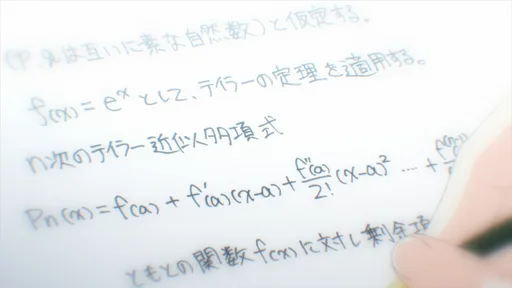 (p, qは互いに素な自然数)と仮定する。
f(x) = e^x として、テイラーの定理を適用する。
n次のテイラー近似多項式
Pn(x) = f(a) + f'(a)(x-a) + f''(a)/2! (x-a)^2 … +
ともとの関数f(x)に対し剰余項